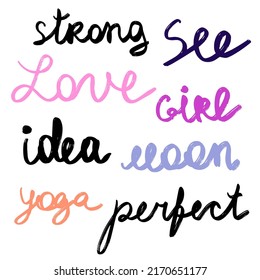 strong
See
Love
GiRL
idea
moon
yoga
perfect
shutterstock.com · 2170651177